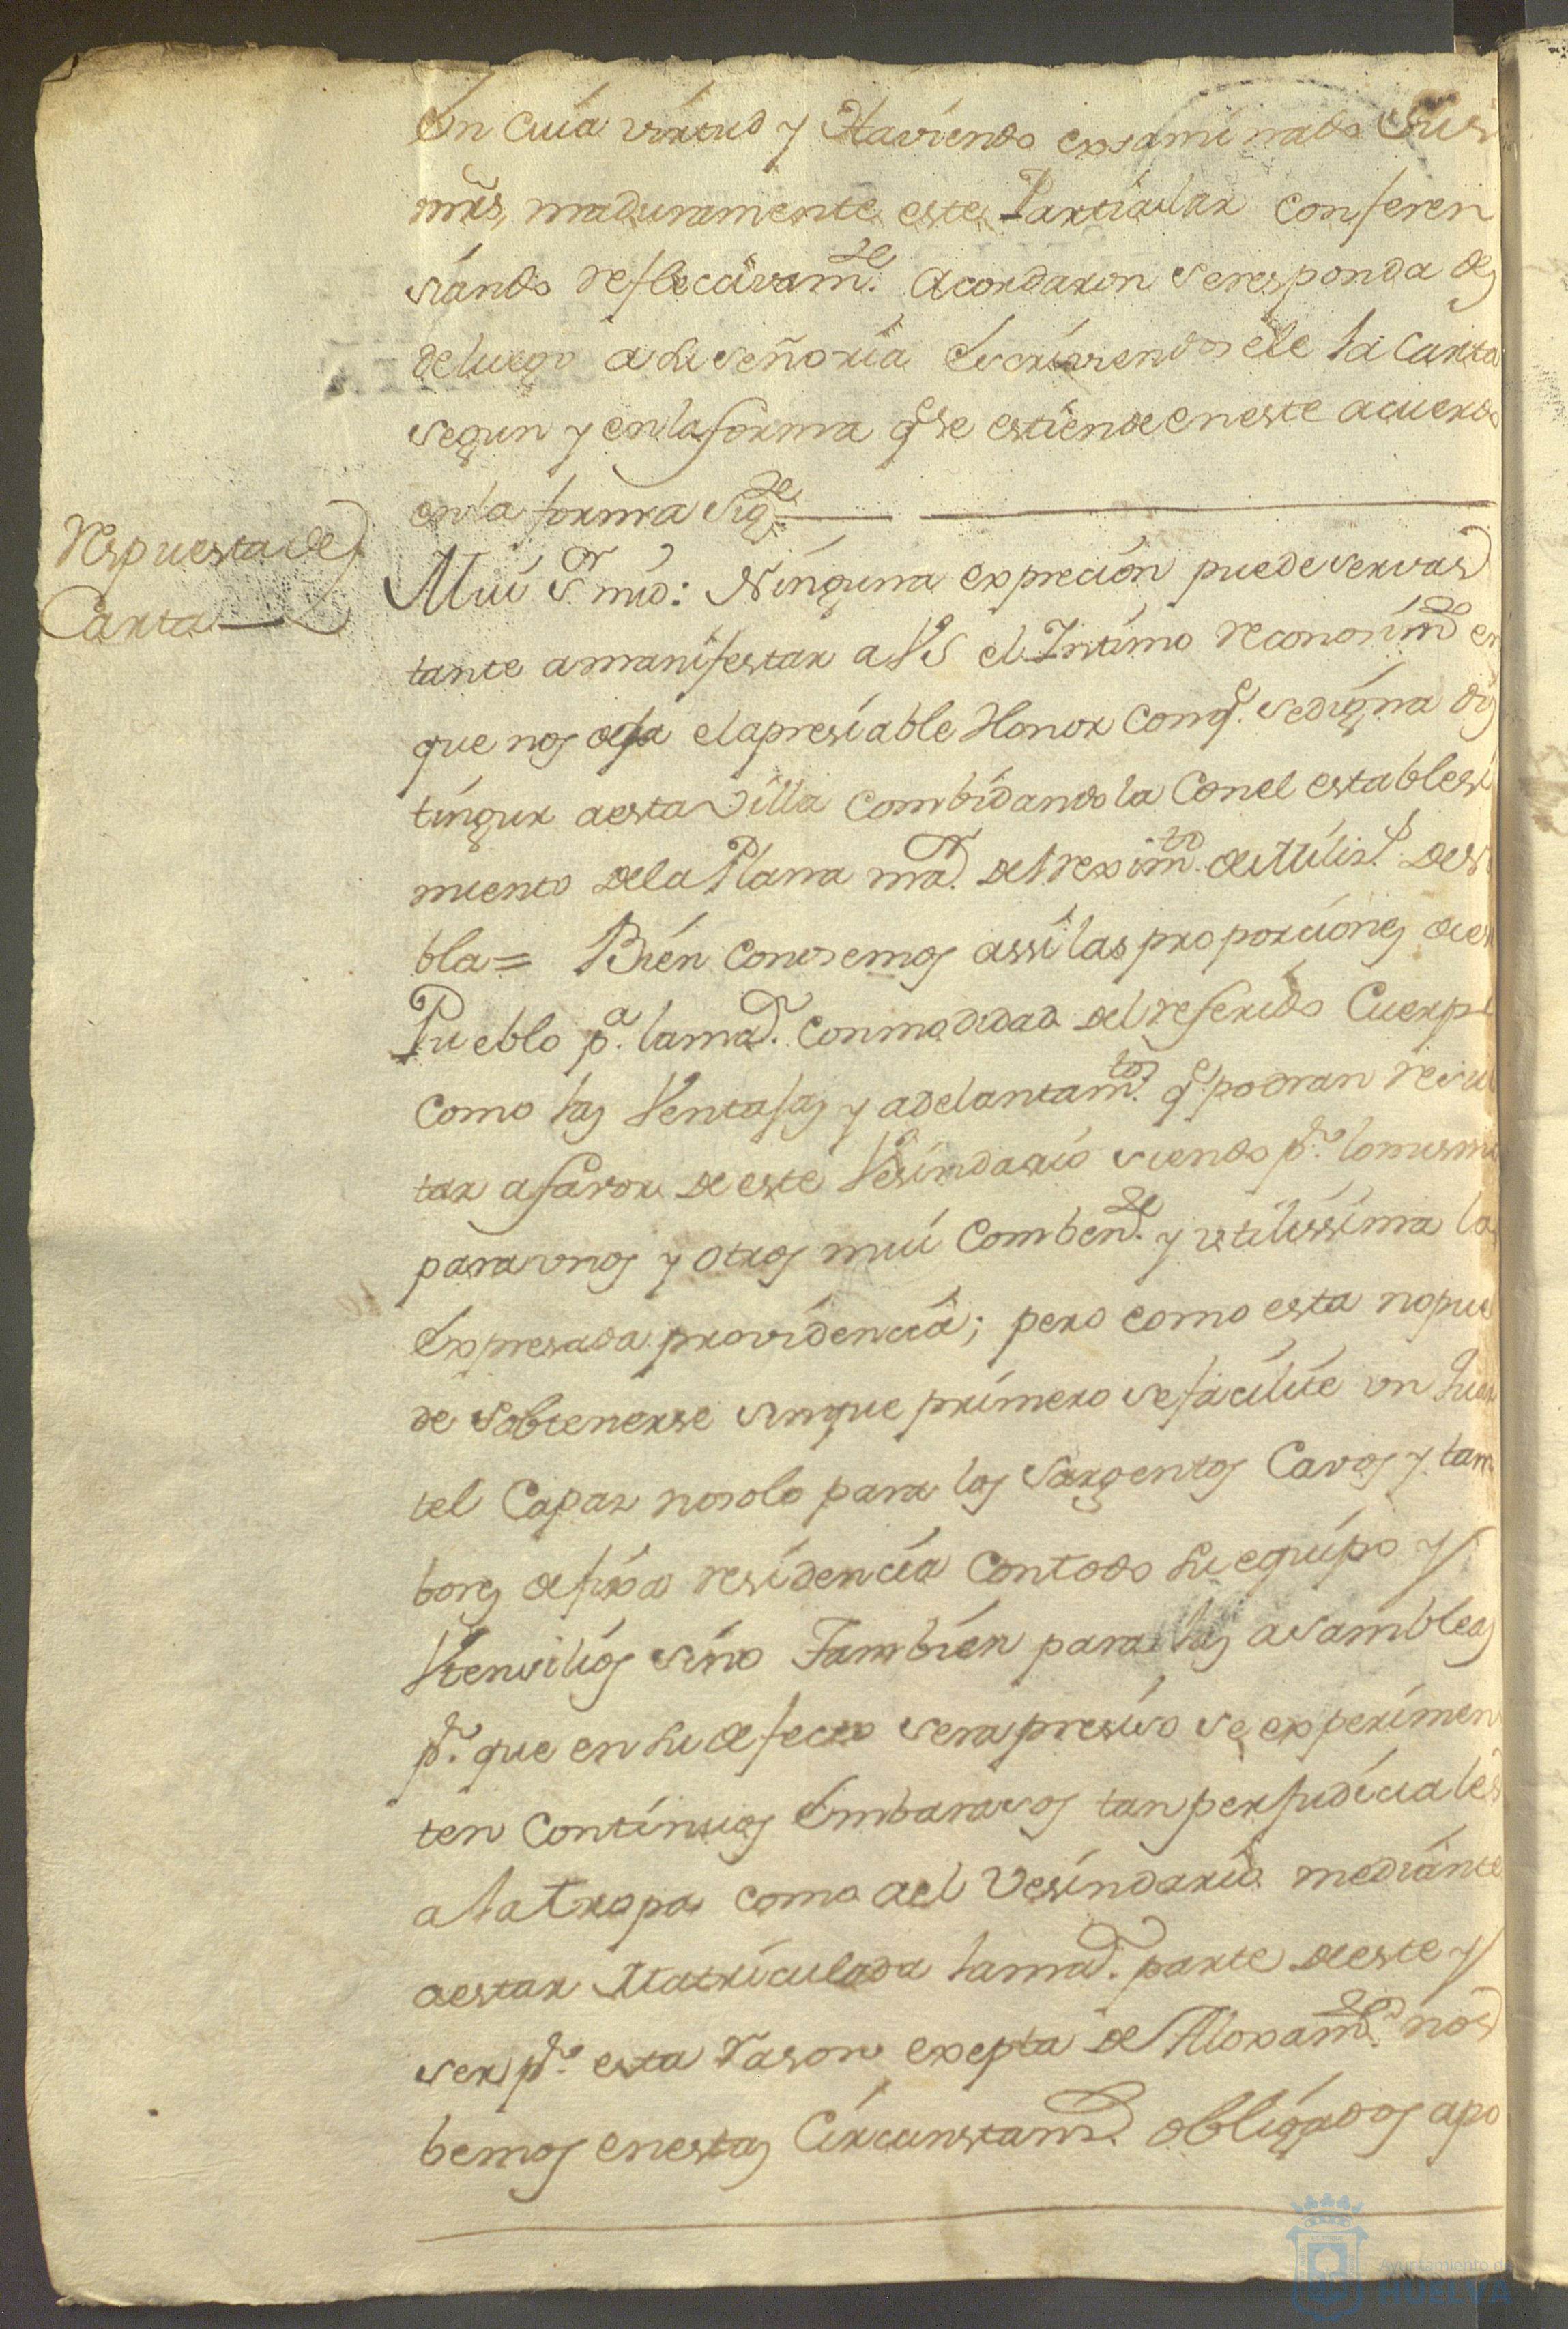 En cuia virtud y Haviendo exsaminado Sus
mrs, maduramente este Particular conferen
siando reflecsivamte. Acordaron se responda des
de luego a Su señoria Escriviendosele la Carta
segun y en la forma qe se estiende en este acuerdo
en la forma sigte
Respuesta de
Carta
Mui Sr mio: Ninguna expreción puede ser vas
tante a manifestar a VS el Intimo reconosimto en
que nos deja el apresiable Honor con qe. se digna dis
tinguir a esta Villa Combidandola Con el establesi
miento de la Plana mar. del reximto. de Milis.s de Si
bla= Bien conosemos assi las proporciones de es
Pueblo pa. la mar. conmodidad del referido Cuerpo
como las Ventajas y adelantamtos. qe podran resul
tar a favor de este Vesindario siendo pr. lo mismo
para unos y otros mui Combente. y utilissima la
Expresada providencia; pero como esta no pue
de Sobtenerse sin que primero se facilite un Quar
tel Capaz no solo para los Sargentos Cavos y tam
bores de fixa residencia con todo su equipo y
Utensilios sino Tambien para las asambleas
pr. que en su defecto sera presiso se experimen
ten continuos Embarasos tan perjudiciales
a la tropa como a el Vesindario mediante
a estar Matriculada la mar. parte de este y
ser pr. esta rason exepta de Aloxamto. nos
bemos en estas Circunstans. obligados a po
Ayuntamiento de
HUELVA